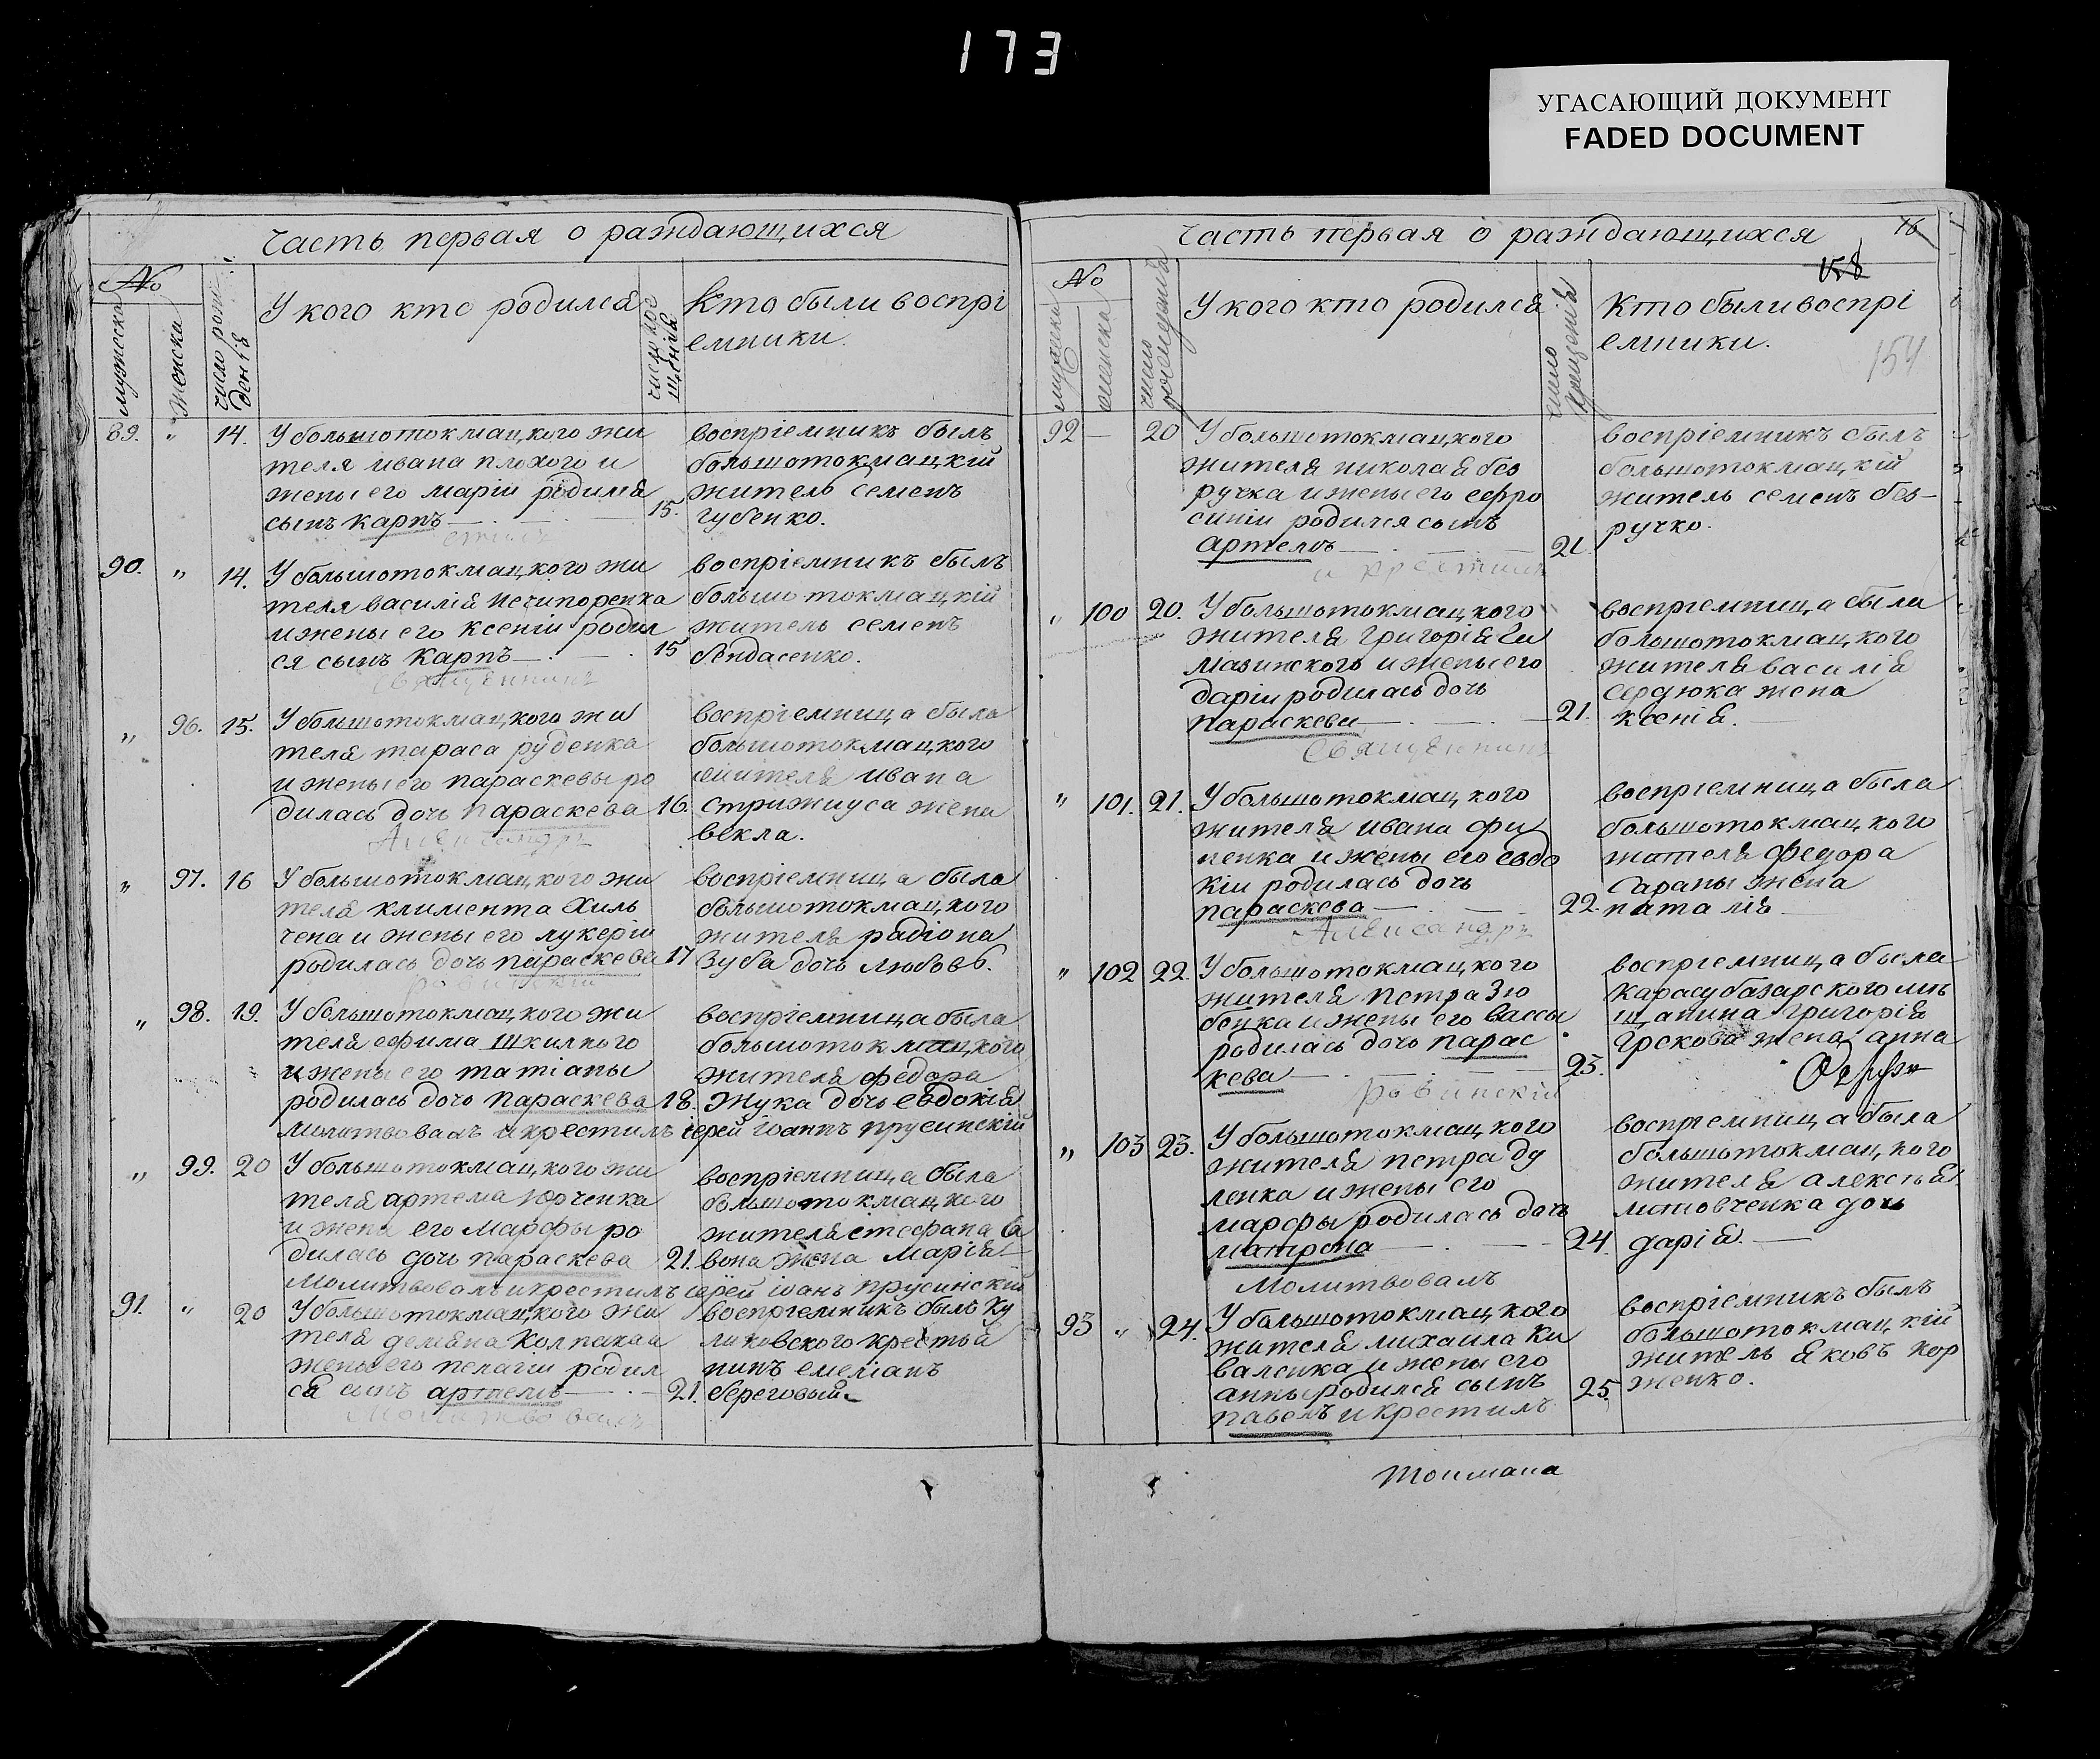 173
УГАСАЮЩИЙ ДОКУМЕНТ
FADED DOCUMENT
Часть первая о раждающихся
№
мужеска
женска
число рож
денія
У кого кто родился
число кре
щенія
Кто были воспрі
емники.
89. " 14. У большотокмацкого жи
теля ивана плохого и
жены его маріи родился
сынъ карпъ 15.
воспріемникъ былъ
большотокмацкій
житель семенъ
губенко.
90. " 14. У большотокмацкого жи
теля василія нечипоренка
и жены его ксеніи родил
ся сынъ карпъ 15
священникъ
воспріемникъ былъ
большотокмацкій
житель семенъ
бондасенко.
" 96. 15. У большотокмацкого жи
теля тараса руденка
и жены его параскевы ро
дилась дочь параскева 16.
Александръ
воспріемница была
большотокмацкого
жителя ивана
стрижиуса жена
векла.
" 97. 16 У большотокмацкого жи
теля климента хиль
чена и жены его лукеріи
родилась дочь параскева 17
ровинскій
воспріемница была
большотокмацкого
жителя радіона
зуба дочь любовь.
" 98. 19. У большотокмацкого жи
теля ефима шкилного
и жены его татіаны
родилась дочь параскева 18.
воспріемница была
большотокмацкого
жителя федора
жука дочь евдокія
молитвовалъ и крестилъ іерей іоаннъ прусинскій
" 99. 20 У большотокмацкого жи
теля артема юрченка
и жены его марфы ро
дилась дочь параскева 21.
воспріемница была
большотокмацкого
жителя стефана са
вона жена марія
молитвовалъ и крестилъ іерей іоанъ прусинскій
91. " 20 У большотокмацкого жи
теля демяна колпака и
жены его пелагіи родил
ся сынъ артемъ 21.
молитвовалъ
воспріемникъ былъ ку
ликовского крестья
нинъ емеліанъ
береговый
Часть первая о раждающихся
16
158
154
№
женска
число
рожденія
У кого кто родился
число
крещенія
Кто были воспрі
емники.
92 — 20 У большотокмацкого
жителя николая без
ручка и жены его ефро
синіи родился сынъ
артемъ 21
и крестилъ
воспріемникъ былъ
большотокмацкій
житель семенъ без-
ручко.
" 100 20. У большотокмацкого
жителя григорія
и жены его
даріи родилась дочь
параскева 21.
священникъ
воспріемница была
большотокмацкого
жителя василія
сердюка жена
ксенія.
" 101. 21. У большотокмацкого
жителя ивана фи
ненка и жены его евдо
кіи родилась дочь
параскева 22.
Александръ
воспріемница была
большотокмацкого
жителя федора
сараны жена
наталія
" 102 22. У большотокмацкого
жителя петра зю
бенка и жены его вассы
родилась дочь парас
кева 23.
ровинскій
воспріемница была
карасубазарского мѣ
щанина григорія
грекова жена анна
" 103 23. У большотокмацкого
жителя петра ду
ленка и жены его
марфы родилась дочь
матрона 24.
молитвовалъ
воспріемница была
большотокмацкого
жителя алексѣя
литовченка дочь
дарія.
93 " 24. У большотокмацкого
жителя михаила ки
валенка и жены его
анны родился сынъ 25.
павелъ и крестилъ
воспріемникъ былъ
большотокмацкій
житель яковъ кор
женко.